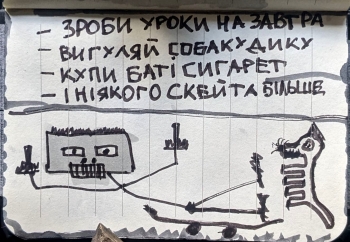 - ЗРОБИ УРОКИ НА ЗАВТРА
- ВИГУЛЯЙ СОБАКУ ДИКУ
- КУПИ БАТІ СИГАРЕТ
- І НІЯКОГО СКЕЙТА БІЛЬШЕ